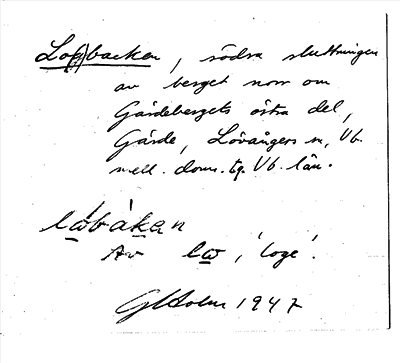 Lo(g)backen, södra sluttningen
av berget norr om
Gärdebergets östra del,
Gärde, Lövångers sn, Vb.
mell. doms. tg. Vb. län.
lὼ̲bàka̲n
Av lω̲, 'loge'.
G Holm 1947